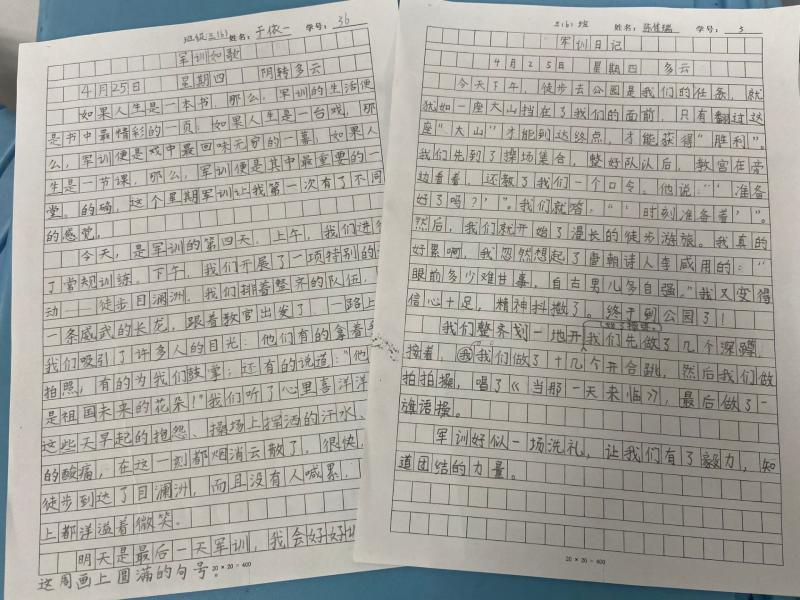 班级三(6) 姓名：于依一 学号：36
军训如歌
4月25日 星期四 阴转多云
如果人生是一本书，那么，军训的生活便
是书中最精彩的一页；如果人生是一台戏，那
么，军训便是戏中最回味无穷的一幕；如果人
生是一节课，那么，军训便是其中最重要的一
堂。的确，这个星期军训让我第一次有了不同
的感觉。
今天，是军训的第四天。上午，我们进行
了常规训练。下午，我们开展了一项特别的
动——徒步目澜洲。我们排着整齐的队伍，
一条威武的长龙，跟着教官出发了。一路上
我们吸引了许多人的目光：他们有的拿着
拍照，有的为我们鼓掌；还有的说道：“他
是祖国未来的花朵！”我们听了心里喜洋洋
这些天早起的抱怨、操场上挥洒的汗水、
的酸痛，在这一刻都烟消云散了。很快，
徒步到达了目澜洲，而且没有人喊累，
上都洋溢着微笑。
明天是最后一天军训，我会好好
这周画上圆满的句号。
20×20=400
三(6)班 姓名：陈佳瑞 学号：3
军训日记
4月25日 星期四 多云
今天下午，徒步去公园是我们的任务，就
犹如一座大山挡在了我们的面前，只有翻过这
座“大山”才能到达终点，才能获得“胜利”。
我们先到了操场集合，整好队以后，教官在旁
边看着，还教了我们一个口令。他说：“‘准备
好了吗？’”。我们就答，“‘时刻准备着’”。
然后，我们就开始了漫长的徒步游旅。我真的
好累啊，我忽然想起了唐朝诗人李咸用的：“
眼前多少难甘事，自古男儿多自强。”我又变得
信心十足，精神抖擞了。终于到公园了！
我们整齐划一地开始了操练。我们先做了几个深蹲，
接着，我我们做了十几个开合跳，然后我们做
拍拍操，唱了《当那一天来临》，最后做了一
旗语操。
军训好似一场洗礼，让我们有了毅力，知
道团结的力量。
20×20=400